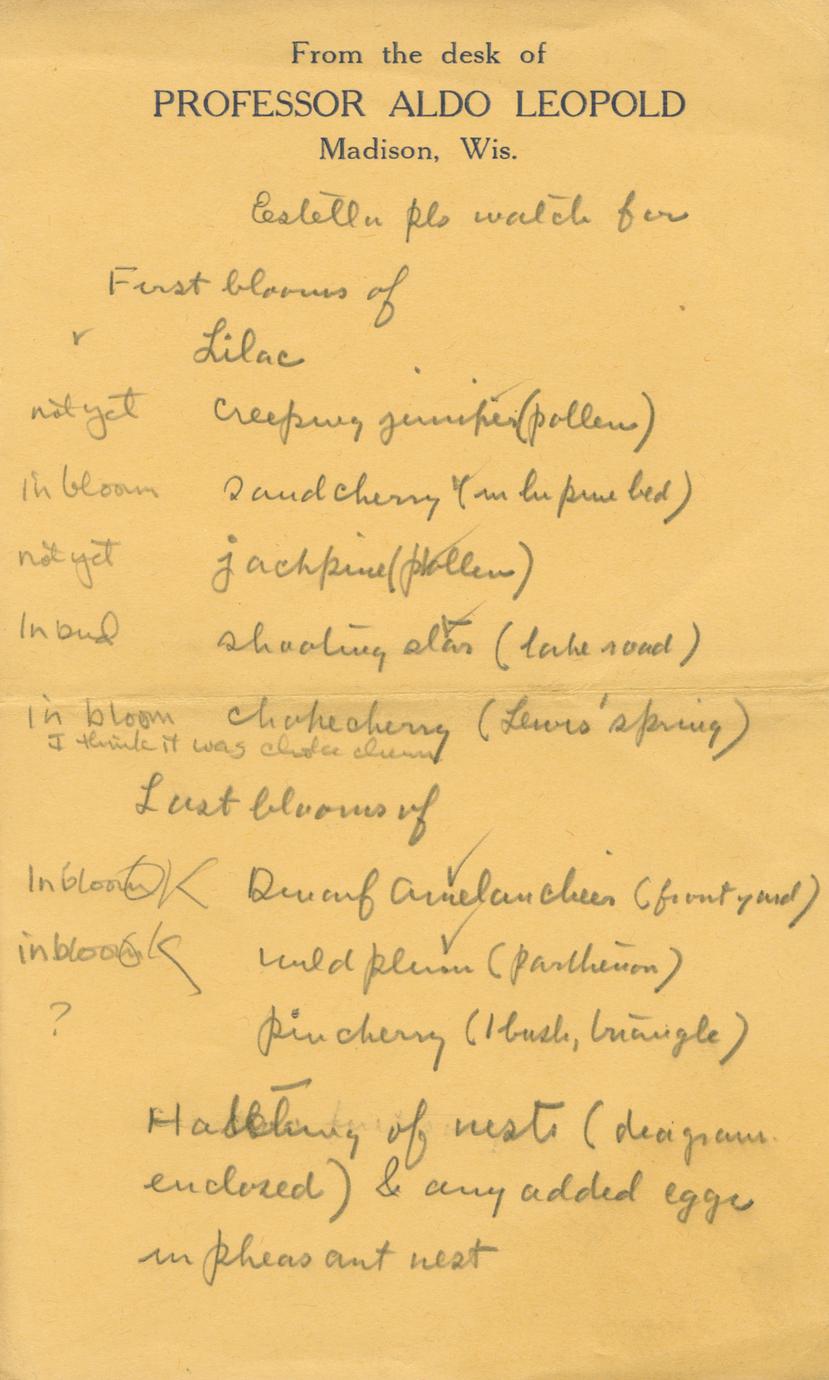 From the desk of
PROFESSOR ALDO LEOPOLD
Madison, Wis.
Estella pls watch for
First blooms of
✓ Lilac
not yet creeping juniper (pollen)
in bloom sand cherry (in lupine bed)
not yet jackpine (pollen)
In bud shooting star (lake road)
in bloom chokecherry (Lewis' spring)
I think it was choke cherry
Last blooms of
In bloom OK Dwarf Amelanchier (front yard)
in bloom OK wild plum (parthenon)
? pin cherry (1 bush, triangle)
Hatching of nests (diagram
enclosed) & any added eggs
in pheasant nest